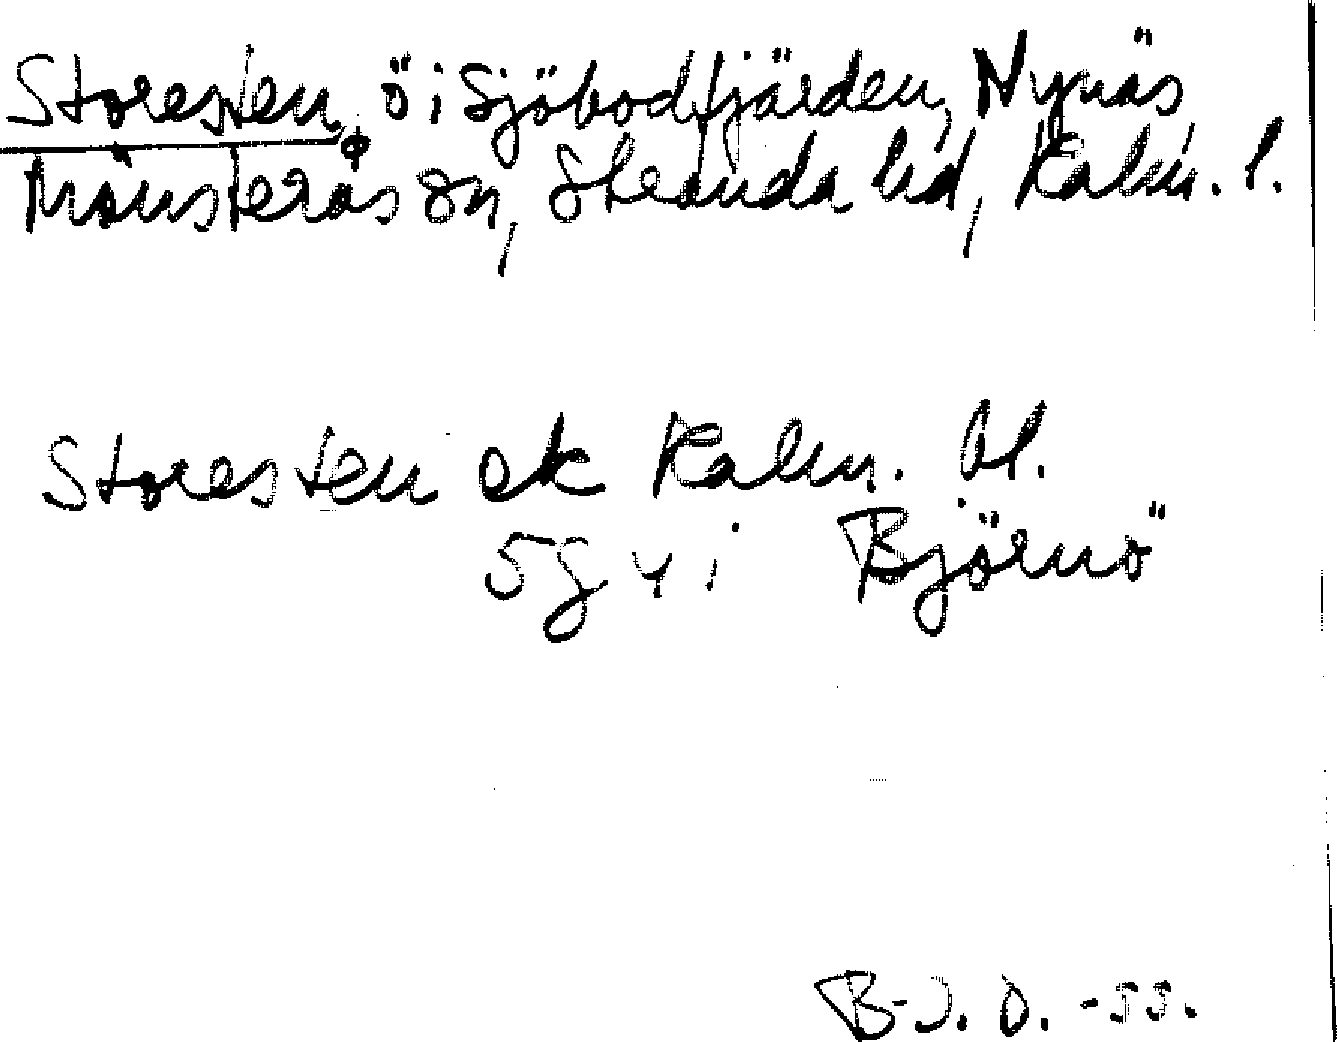 Storesten, ö i Sjöbodfjärden, Nynäs
Mönsterås sn, Stranda hd, Kalm. l.
Storesten ek Kalm. bl.
5g 4 i Björnö
B-J. O. -55.